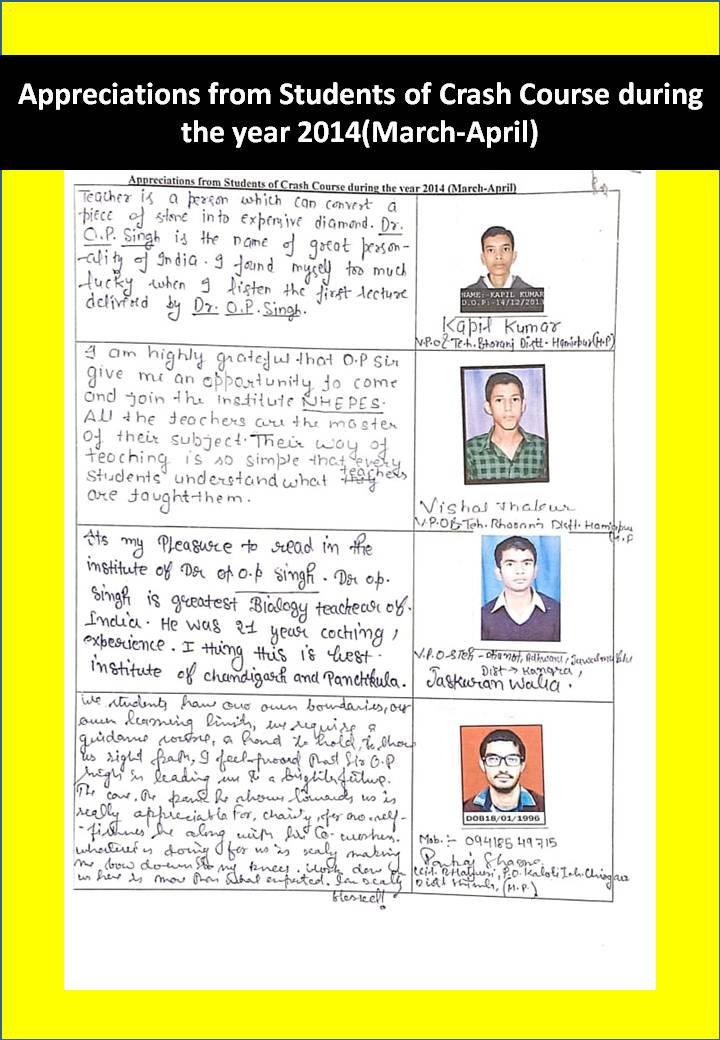 Appreciations from Students of Crash Course during
the year 2014(March-April)
Appreciations from Students of Crash Course during the year 2014 (March-April)
Teacher is a person which can convert a
piece of stone into expensive diamond. Dr.
O.P. Singh is the name of great person-
-ality of India. I found myself too much
lucky when I listen the first lecture
delivered by Dr. O.P. Singh.
NAME:-KAPIL KUMAR
D.O.P:-14/12/2013
Kapil Kumar
V.P.O & Teh. Bhoranj Distt- Hamirpur (H.P)
I am highly grateful that O.P Sir
give me an opportunity to come
and join the institute NHEPES.
All the teachers are the master
of their subject. Their way of
teaching is so simple that every
students understand what teachers
are taught them.
Vishal Thakur
V.P.O & Teh. Bhoranj Distt. Hamirpur
H.P
Its my Pleasure to read in the
institute of Dr of O.P Singh. Dr O.p.
Singh is greatest Biology teachear of
India. He was 21 year coching,
experience. I thing this is best
institute of chandigarh and Panchkula.
V.P.O & Teh -
Dist → Kangra,
Jaskaran Walia.
We students have our own boundaries, our
own learning limits, we require a
guidance source, a hand to hold, to show
us right path, I feel proud that Sir O.P
Singh is leading us to a brighter future.
The care, the he shows towards us is
really appreciable For, charity, for our self-
he along with his Co-workers.
whatever is doing for us is really making
me bow down to my knees. Work done for
us here is more than what expected. I am really
blessed!
DOB18/01/1996
Mob. :- 094185 49715
Pankaj Sharma
P.O. Kaloti Teh. Chirgaon
Distt Shimla, (H.P.)